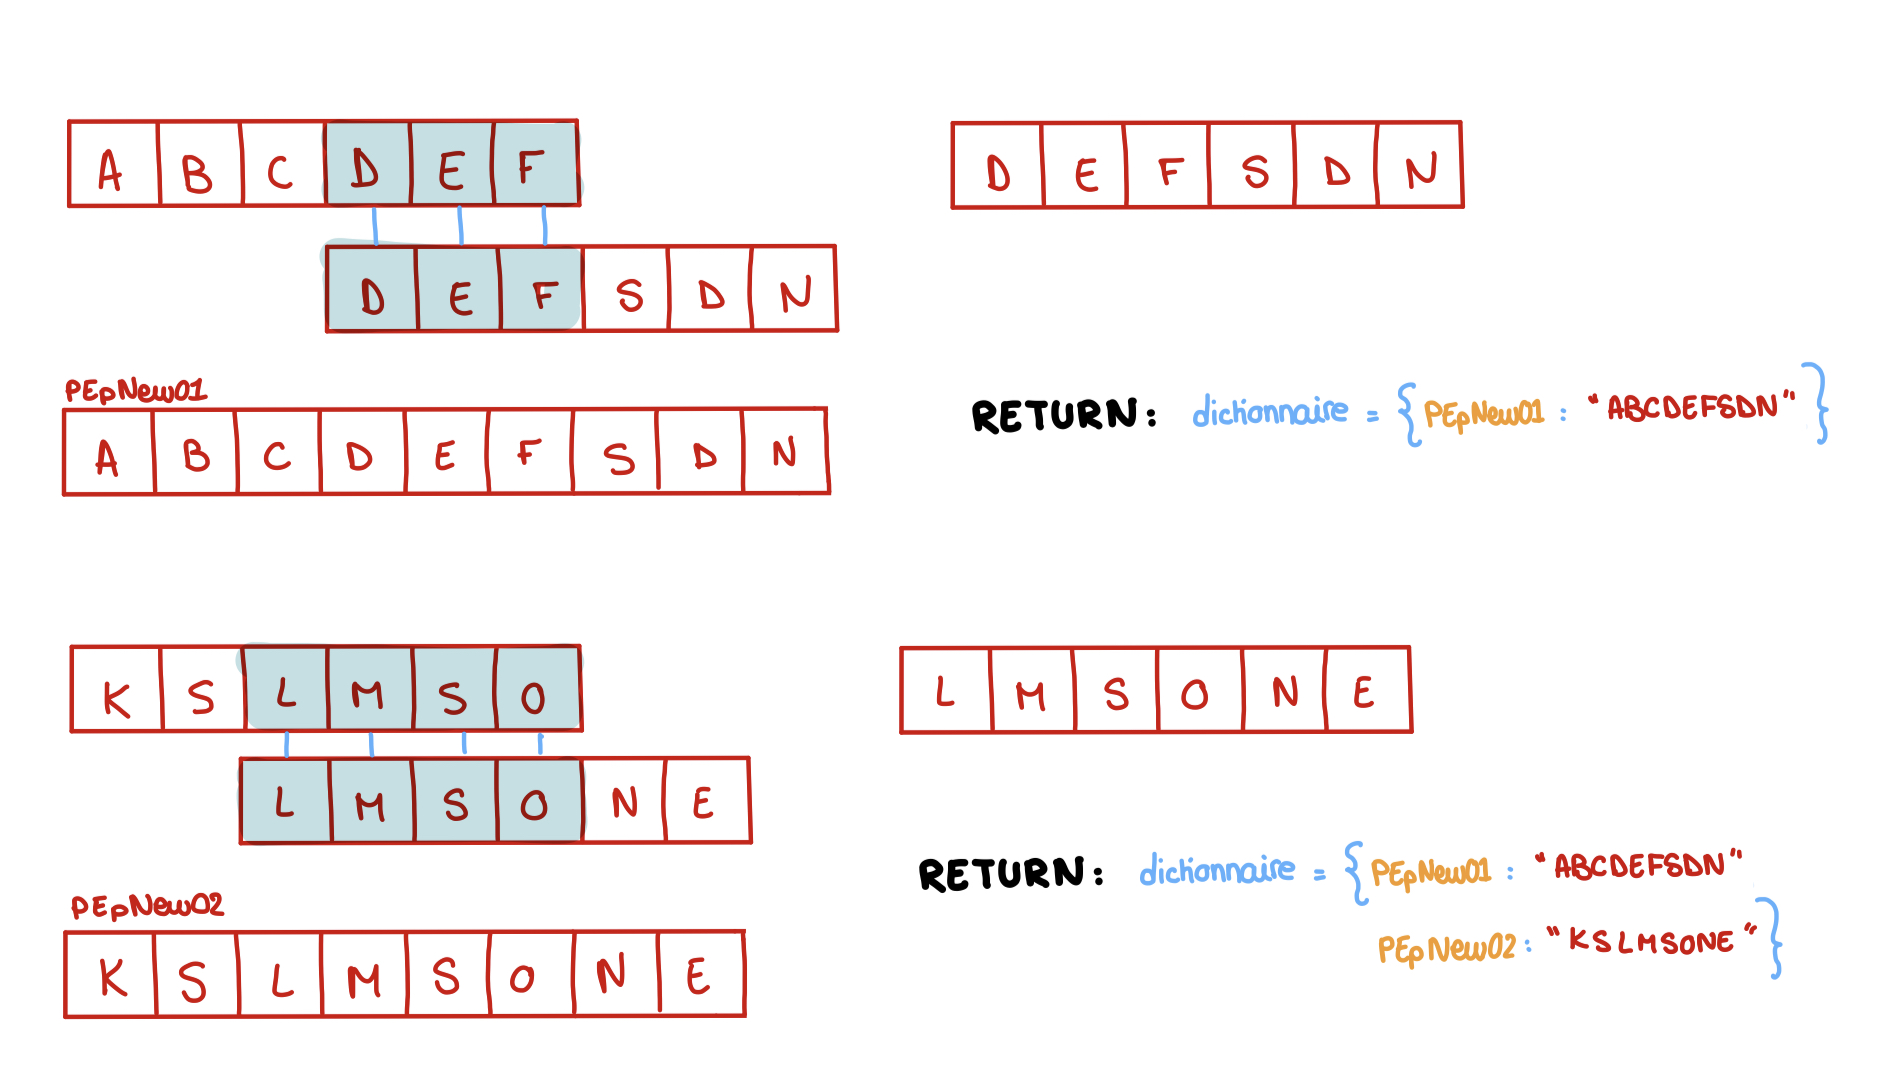 A B C D E F
D E F S D N
D E F S D N
PEpNew01
A B C D E F S D N
RETURN: dichonnaire = { PEpNew01 : "ABCDEFSDN" }
K S L M S O
L M S O N E
L M S O N E
PEpNew02
K S L M S O N E
RETURN: dichonnaire = { PEpNew01 : "ABCDEFSDN"
PEpNew02 : "KSLMSONE" }